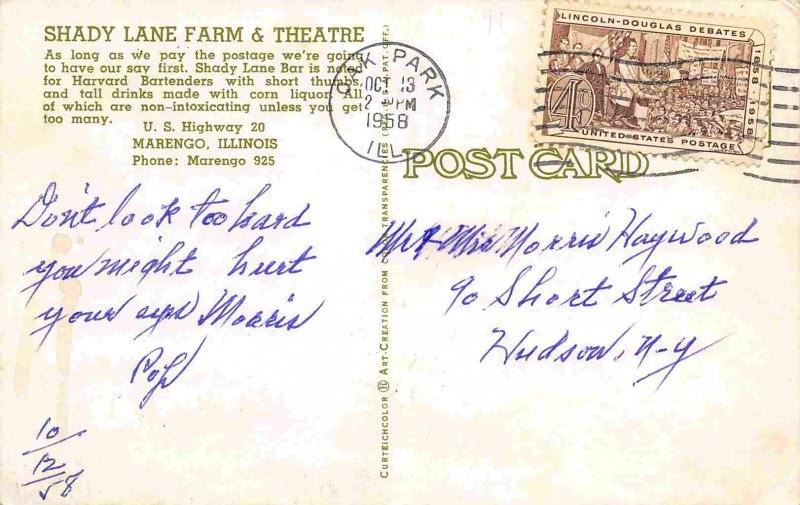 SHADY LANE FARM & THEATRE
As long as we pay the postage we're going
to have our say first. Shady Lane Bar is noted
for Harvard Bartenders with short thumbs,
and tall drinks made with corn liquor. All
of which are non-intoxicating unless you get
too many.
U. S. Highway 20
MARENGO, ILLINOIS
Phone: Marengo 925
Don't look too hard
you might hurt
your eyes Morris
Pop
10/
12/
58
CURTEICHCOLOR ® ART-CREATION FROM TRANSPARENCIES PAT. OFF.)
OAK PARK
OCT 13
2 PM
1958
ILL
LINCOLN-DOUGLAS DEBATES
1858-1958
4¢
UNITED STATES POSTAGE
POST CARD
Mr & Mrs Morris Haywood
90 Short Street
Hudson, N-Y